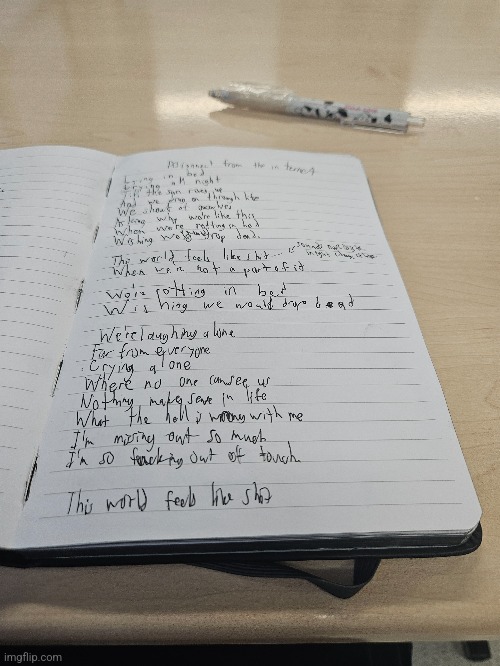 Disconnect from the internet
Lying in bed
Crying all night
Till the sun rises up
And we
on through life
We shout at ourselves
Asking why we're like this
When we're rotting in bed
Wishing we'd drop dead.
The world feels like shit
When we're not a part of it
We're rotting in bed
Wishing we would drop dead
We're laughing alone
Far from everyone
Crying alone
Where no one can see us
Nothing makes sense in life
What the hell is wrong with me
I'm missing out so much
I'm so fucking out of touch
This world feels like shit
imgflip.com